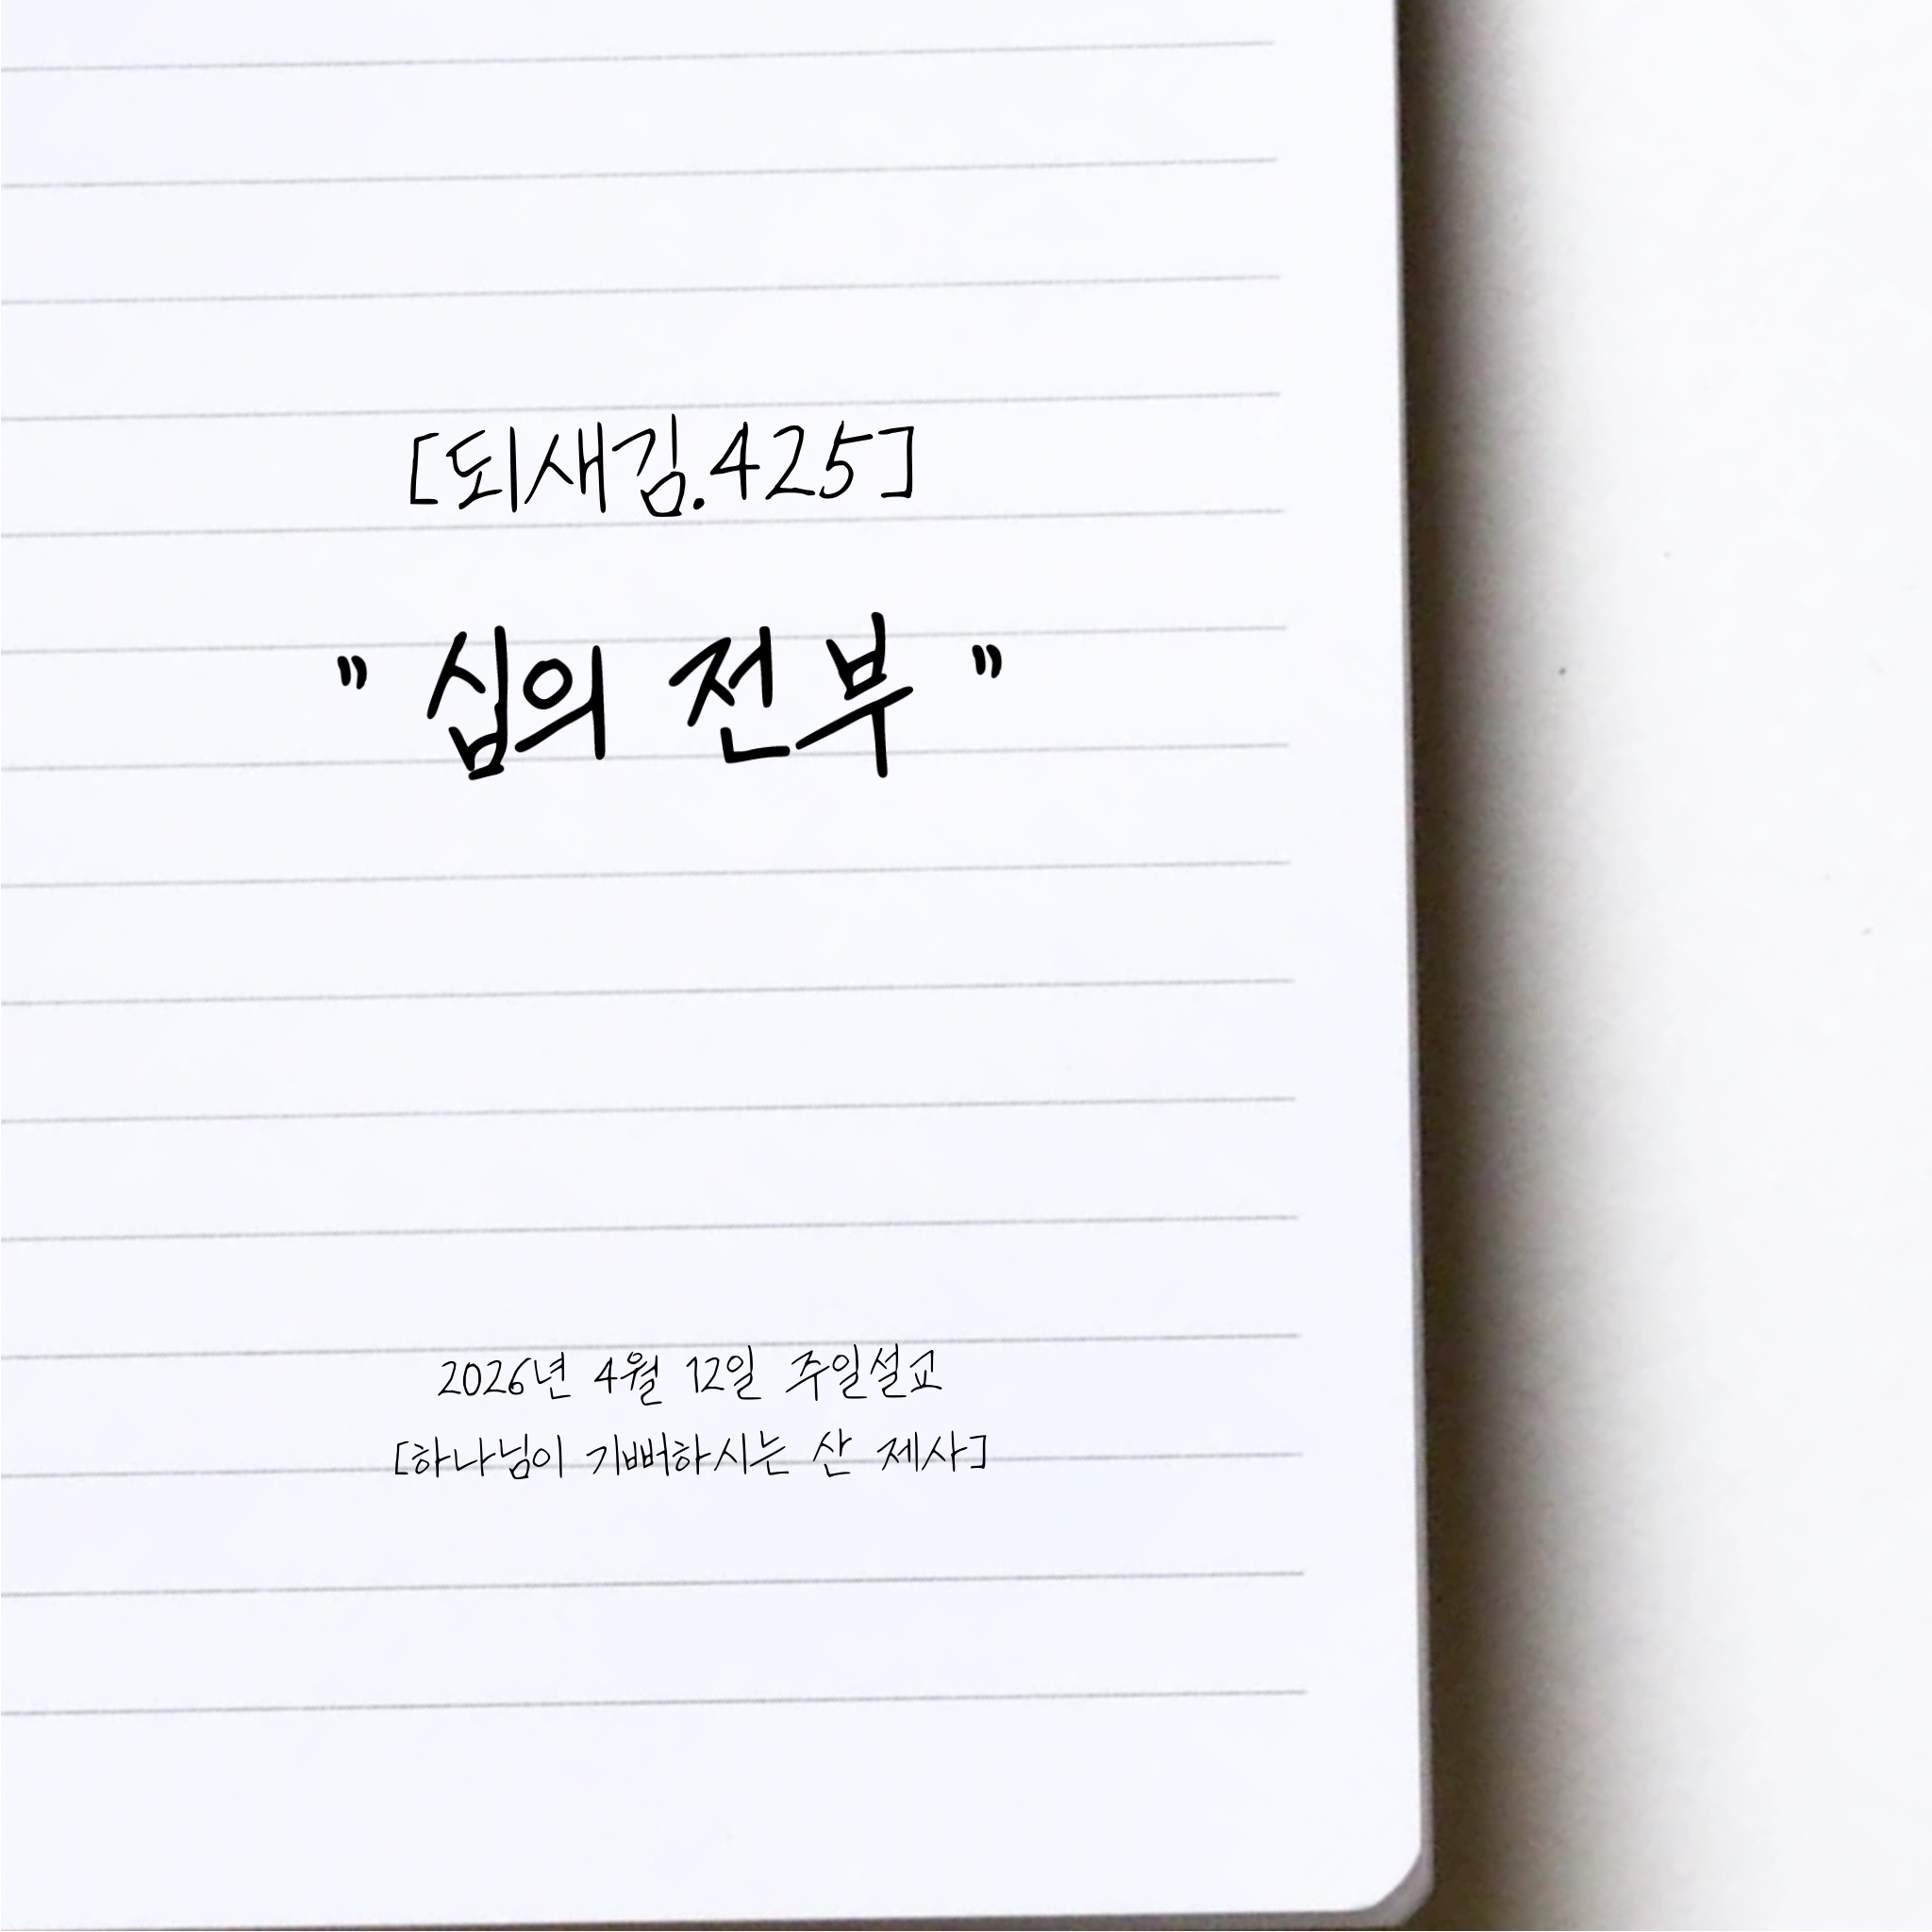 [되새김.425]
" 십의 전부 "
2026년 4월 12일 주일설교
[하나님이 기뻐하시는 산 제사]